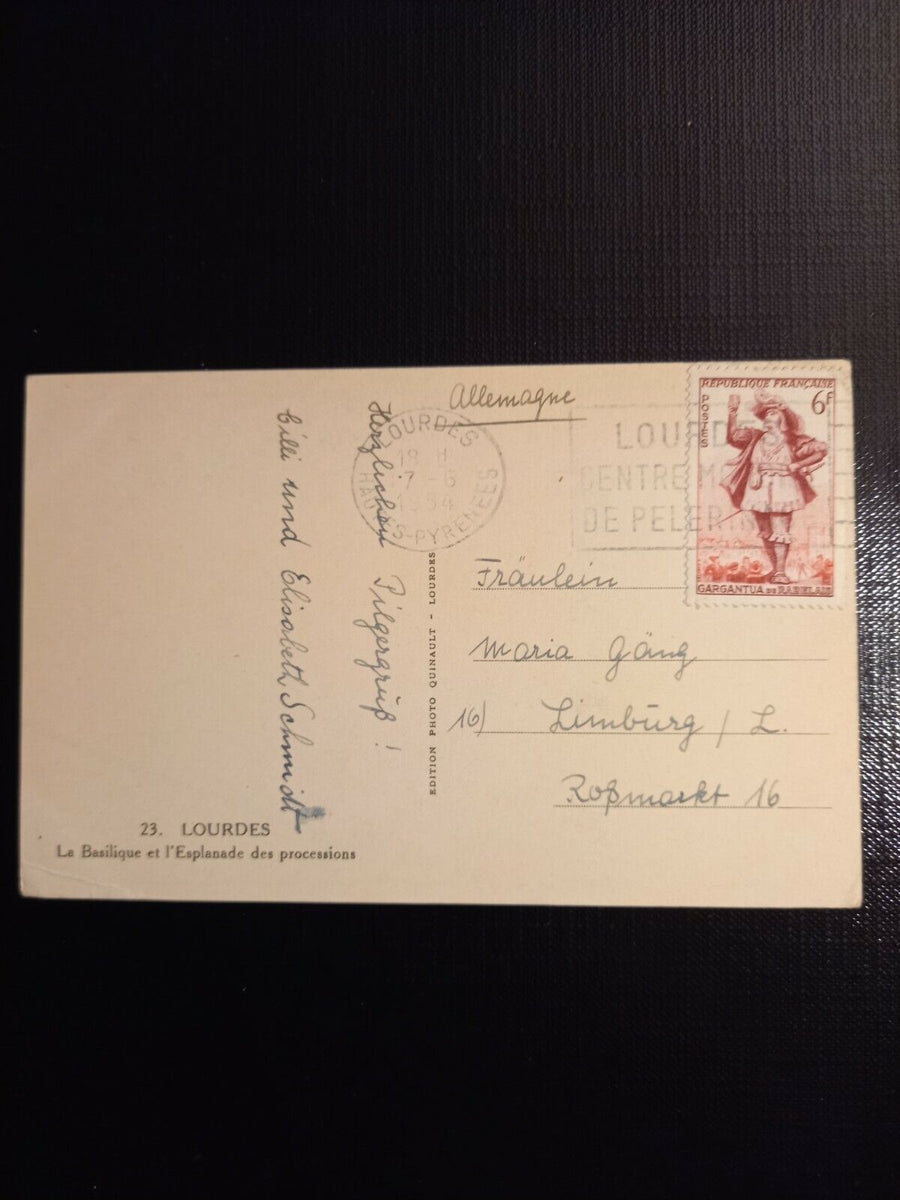 Allemagne
RÉPUBLIQUE FRANÇAISE
6F
POSTES
GARGANTUA DE RABELAIS
LOURDES
CENTRE
DE PELER
LOURDES
18 H
7 - 6
1954
HAUTES-PYRENEES
Fräulein
Maria Gäng
16) Limburg / L.
Roßmarkt 16
Herzlichen Pilgergruß!
und Elisabeth Schmidt
EDITION PHOTO QUINAULT - LOURDES
23. LOURDES
La Basilique et l'Esplanade des processions